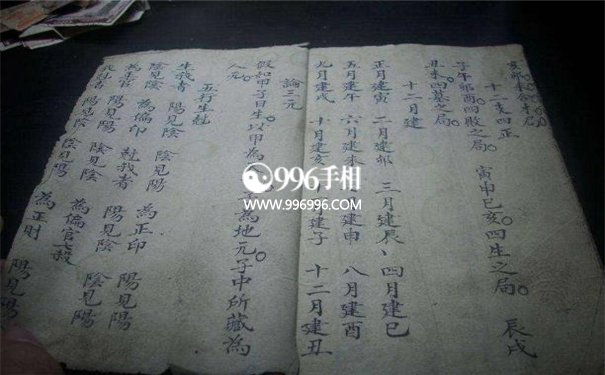 支四正
子午卯酉。四敗之局。 寅申巳亥。四生之局。 辰戌
丑未。四墓之局。
十二月建
正月建寅 二月建卯 三月建辰、四月建巳
五月建午 六月建未 月建申 八月建酉
九月建戌 十月建亥 月建子 十二月建丑
論三元
假如甲子日生。以甲為 子為地元。子中所藏為
人元。
五行生尅
生我者 陽見陰 陰見陽 為正印 陽見陽
陰見陰 為偏印 尅我者 陽見陰 陰見陽
為正官 陽見陽 陰見陰 為偏官七殺
陽見陰 陰見陽 為正財 陽見陽
996手相
www.996996.com